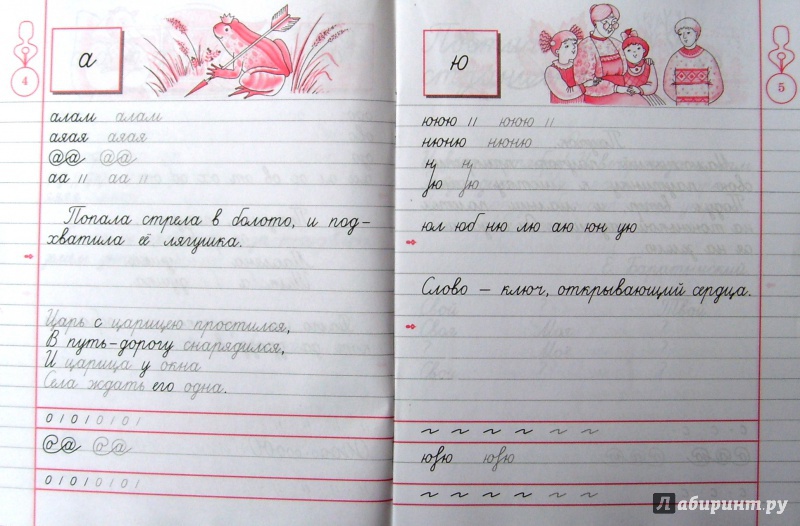 4
а
алам алам
аяая аяая
аа аа
аа ıı аа ıı
Попала стрела в болото, и под-
хватила её лягушка.
Царь с царицею простился,
В путь-дорогу снарядился,
И царица у окна
Села ждать его одна.
0101010101
оа оа
0101010101
5
ю
ююю ıı ююю ıı
нюню нюню
юл юб ню лю аю юн ую
Слово – ключ, открывающий сердца.
~ ~ ~ ~ ~ ~
~ ~ ~ ~ ~ ~
Лабиринт.ру